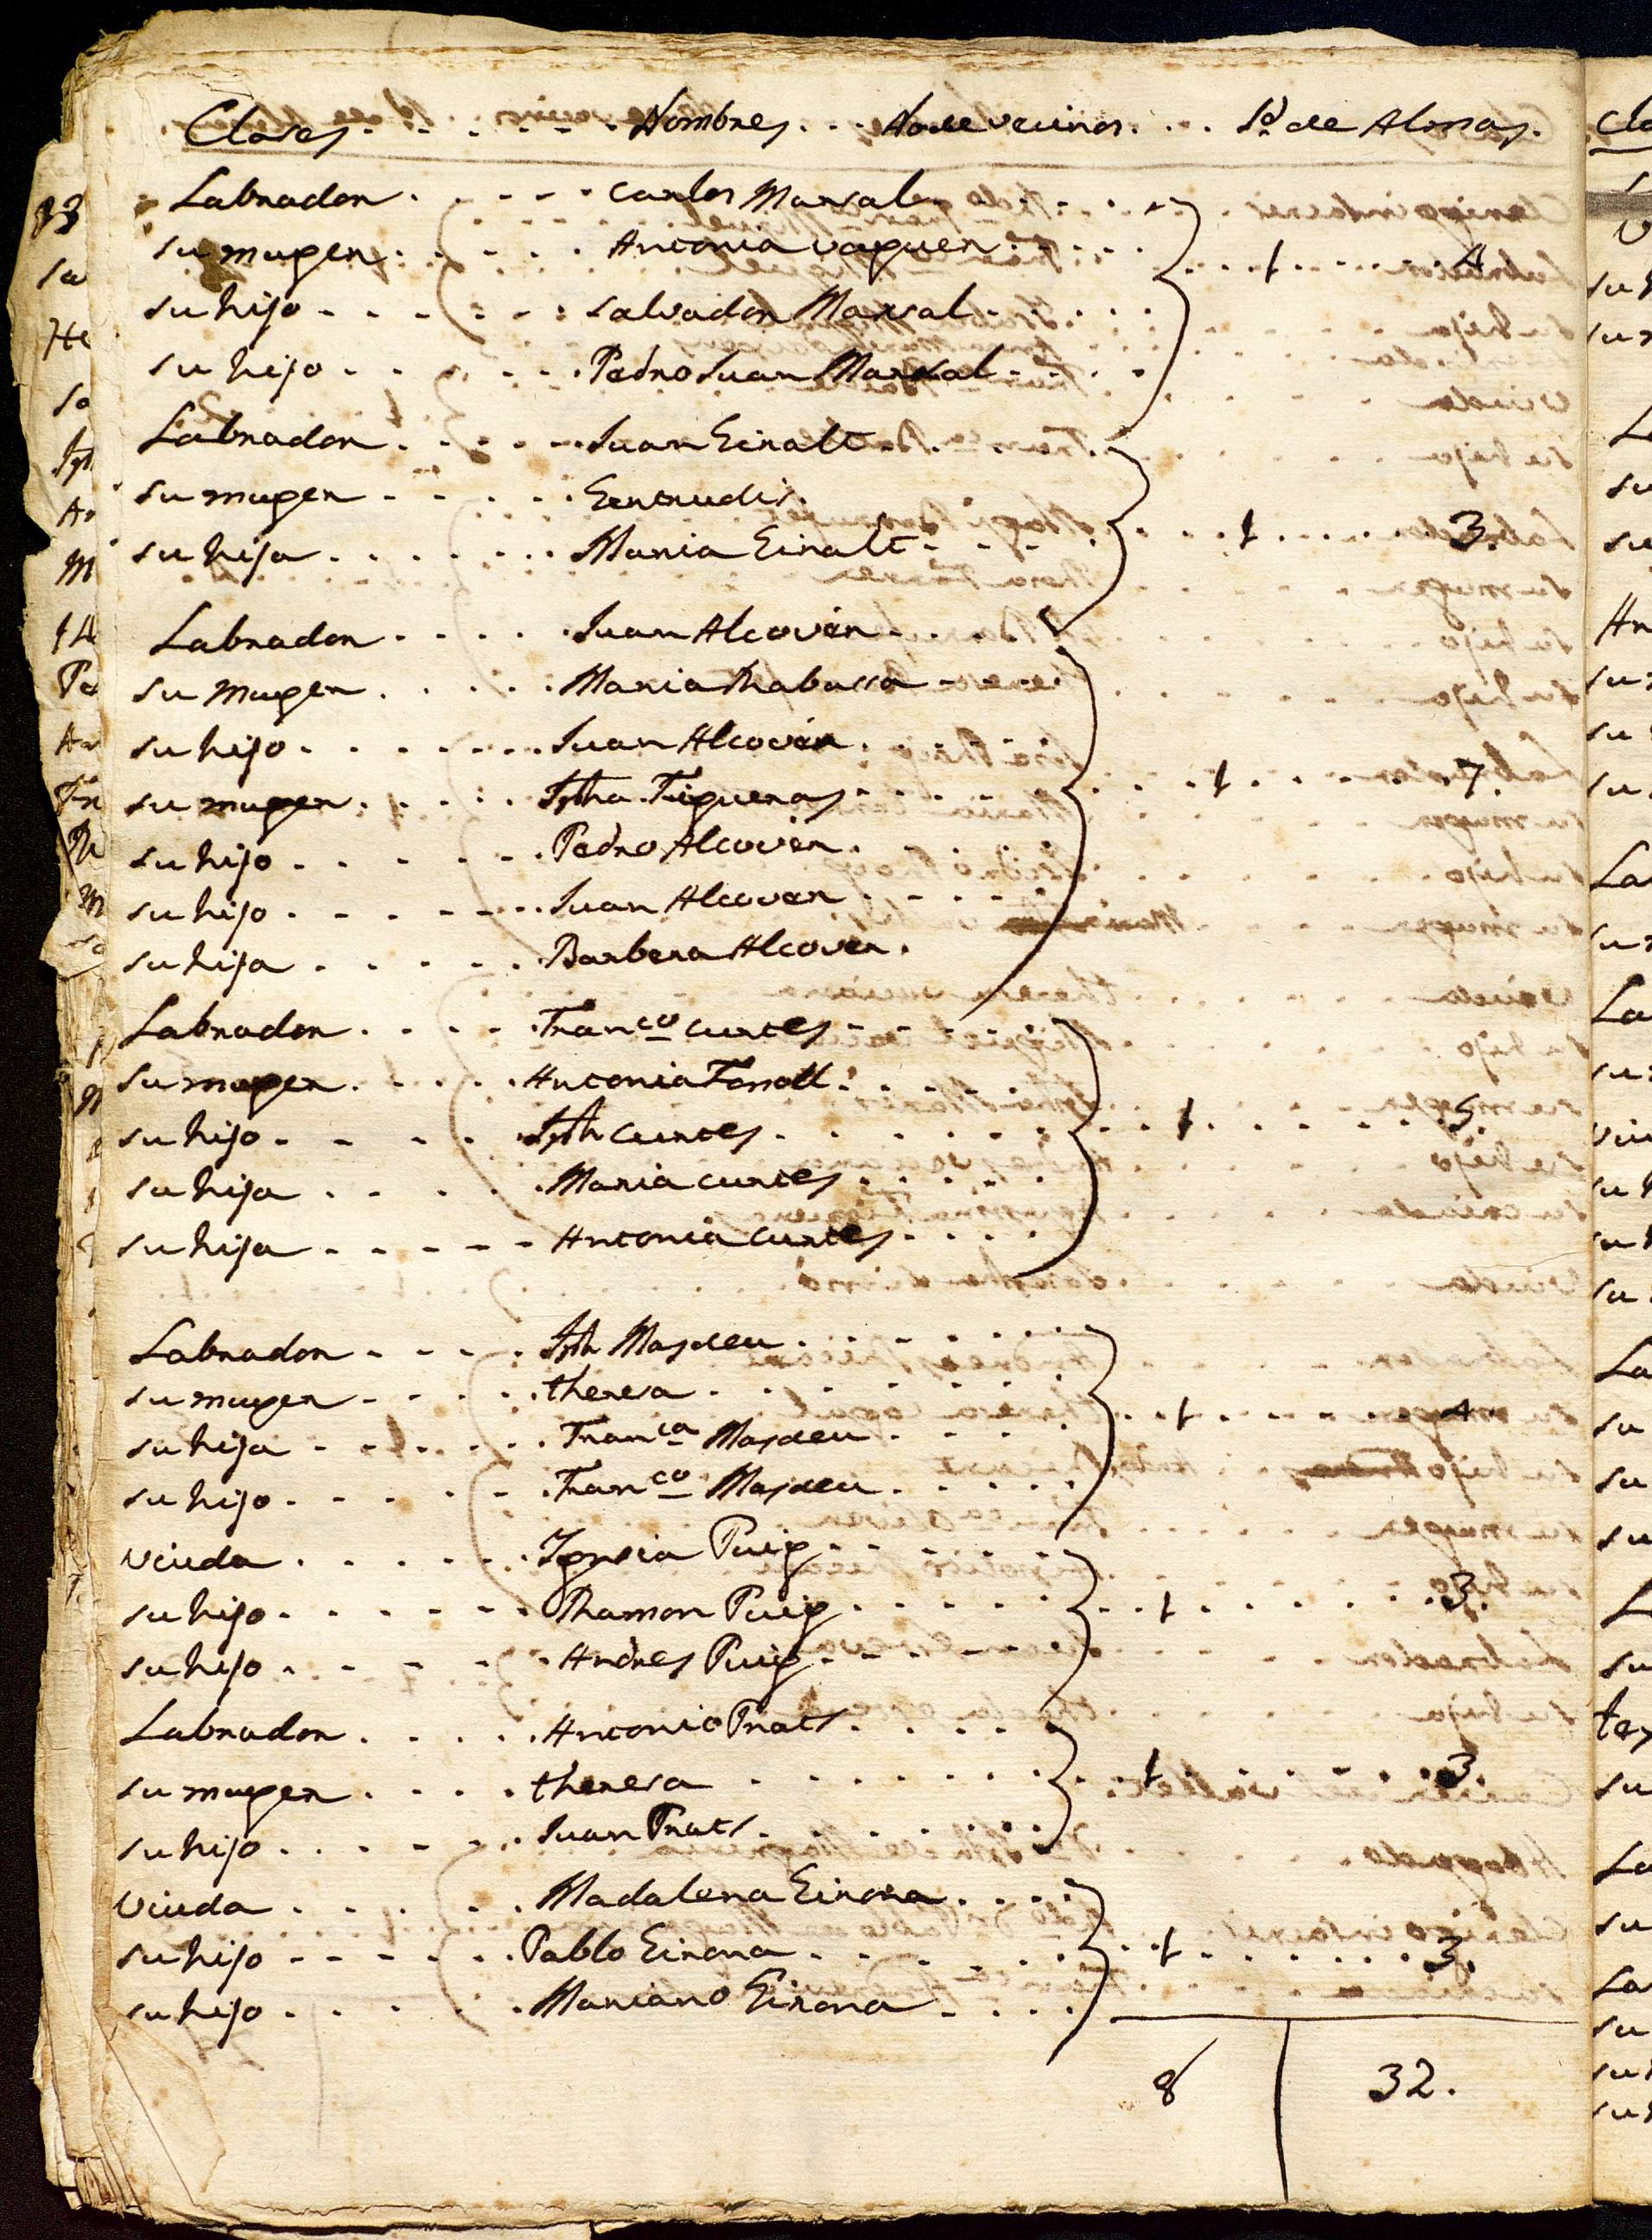 Clases Nombres No de vecinos Id de Almas
Labrador Carlos Marsal
su muger Antonia Vaguer 1 4
su hijo Salvador Marsal
su hijo Pedro Juan Marsal
Labrador Juan Giralt
su muger Gertrudis
su hija Maria Giralt 1 3.
Labrador Juan Alcover
su muger Maria Rabassa
su hijo Juan Alcover
su muger Jpha Figueras 1 7.
su hijo Pedro Alcover
su hijo Juan Alcover
su hija Barbera Alcover
Labrador Franco Curtes
su muger Antonia
su hijo Jph Curtes 1 5.
su hija Maria Curtes
su hija Antonia Curtes
Labrador Jph Masdeu
su muger theresa
su hija Franca Masdeu 1 4
su hijo Franco Masdeu
viuda Puig
su hijo Ramon Puig 1 3.
su hijo Andres Puig
Labrador Antonio Prats
su muger theresa 1 3
su hijo Juan Prats
Viuda Madalena Girona
su hijo Pablo Girona 1 3.
su hijo Mariano Girona
8 32.